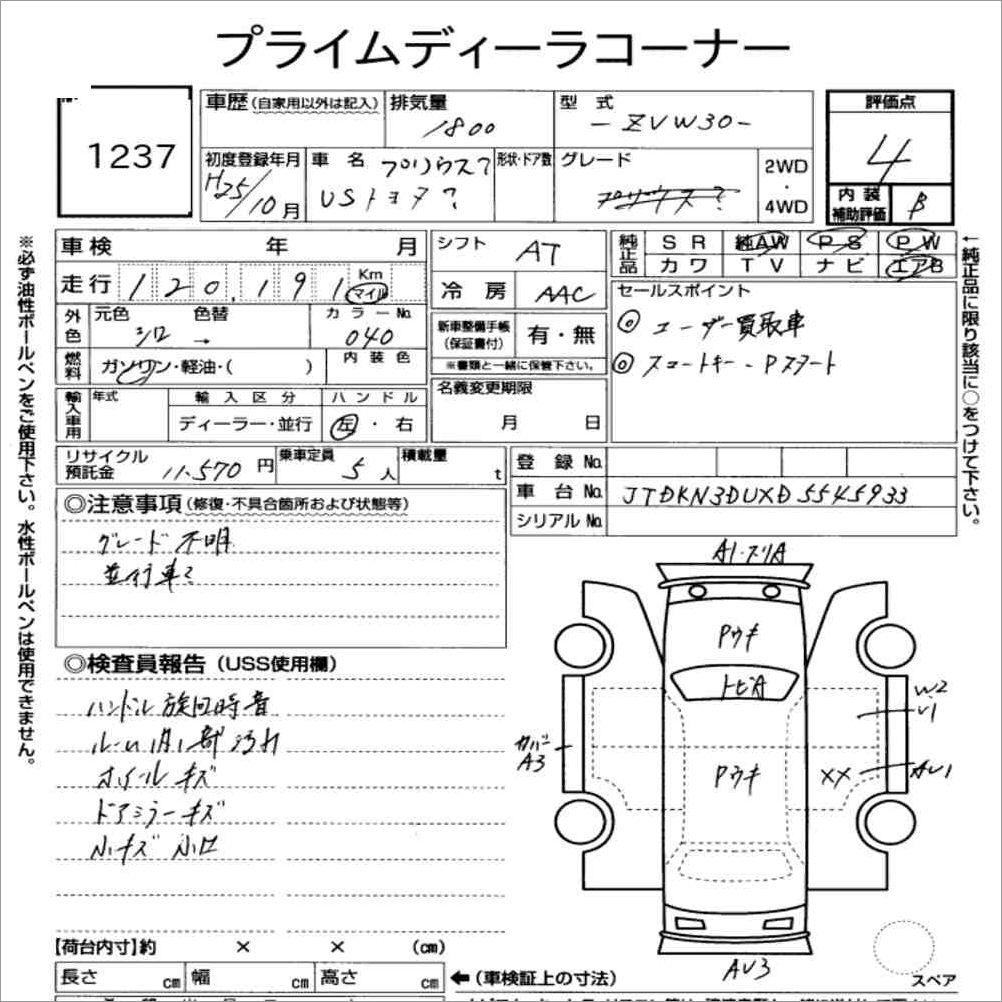 プライムディーラコーナー
1237
車歴(自家用以外は記入)
排気量
1800
型 式
-ZVW30-
評価点
4
内 装
補助評価
B
初度登録年月
H25/10月
車 名
プリウス?
USトヨタ?
形状・ドア数
グレード
プリウス?
2WD
・
4WD
車検 年 月
走行 120,191 Km
マイル
外色
元色 色替 カラーNo.
シロ → 040
燃料
ガソリン・軽油・( )
内 装 色
輸入車用
年式
輸 入 区 分
ハ ン ド ル
ディーラー・並行
左 ・ 右
シフト
AT
冷 房
AAC
新車整備手帳
(保証書付)
有・無
※書類と一緒に保管下さい。
名義変更期限
月 日
純正品
S R 純AW P S P W
カ ワ T V ナ ビ エアB
セールスポイント
◎ ユーザー買取車
◎ スマートキー、Pスタート
リサイクル
預託金 11,570 円
乗車定員
5 人
積載量
t
登 録 No.
車 台 No. JTDKN3DUXD5545933
シリアル No.
◎注意事項(修復・不具合箇所および状態等)
グレード不明
並行車?
◎検査員報告(USS使用欄)
ハンドル旋回時音
ルーム内1部汚れ
ホイールキズ
ドアミラーキズ
小キズ 小凹
【荷台内寸】約 × × (cm)
長さ cm 幅 cm 高さ cm
←(車検証上の寸法)
A1・スリA
Pウキ
トビA
W2
U1
カバー
A3
Pウキ
XX
AU1
AU3
スペア
※必ず油性ボールペンをご使用下さい。水性ボールペンは使用できません。
←純正品に限り該当に○をつけて下さい。